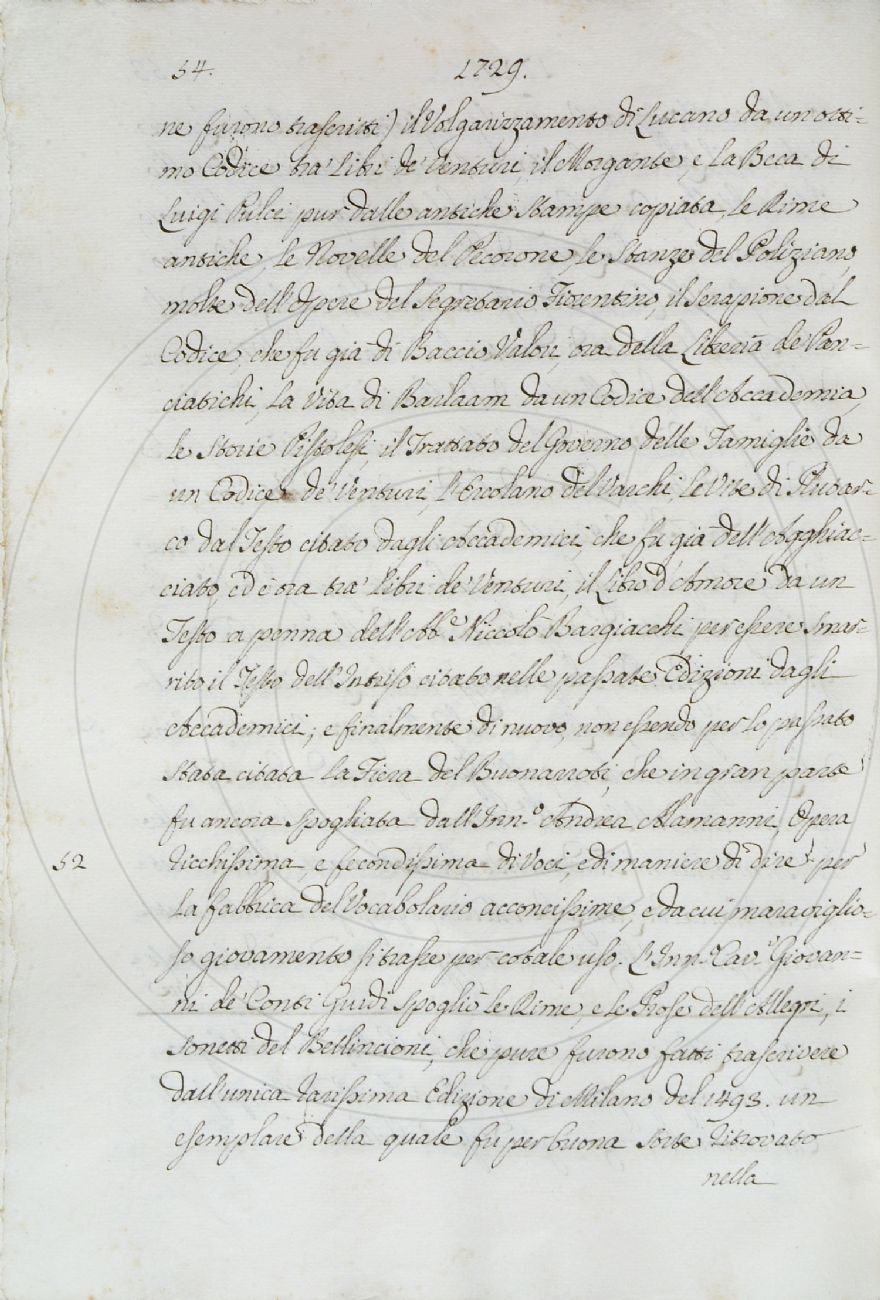 54.
1729.
ne furono trascritti) il Volgarizzamento di Lucano da un otti=
mo Codice tra' Libri de' Venturi, il Morgante, e la Beca di
Luigi Pulci pur dalle antiche stampe copiata, le Rime
antiche, le Novelle del Pecorone, le Stanze del Poliziano,
molte dell'Opere del Segretario Fiorentino, il Serapione dal
Codice, che fu già di Baccio Valori, ora della Libreria de' Pan=
ciatichi, la Vita di Barlaam da un Codice dell'Accademia,
le Storie Pistolesi, il Trattato del Governo delle Famiglie da
un Codice de' Venturi, l'Ercolano del Varchi, le Vite di Plutar=
co dal Testo citato dagli Accademici, che fu già dell'Agghiac=
ciato, ed è ora tra' Libri de' Venturi, il Libro d'Amore da un
Testo a penna dell'Abb.e Niccolò Bargiacchi per essere smar=
rito il Testo dell'Intriso citato nelle passate Edizioni dagli
Accademici; e finalmente di nuovo, non essendo per lo passato
stata citata la Fiera del Buonarroti, che in gran parte
fu ancora spogliata dall'Inn.o Andrea Alamanni, Opera
52
ricchissima, e fecondissima di Voci, e di maniere di dire per
la fabbrica del Vocabolario acconcissime, e da cui maraviglio=
so giovamento si trasse per cotale uso. L'Inn. Cav. Giovan=
ni de' Conti Guidi spogliò le Rime, e le Prose dell'Allegri, i
Sonetti del Bellincioni, che pure furono fatti trascrivere
dall'unica rarissima Edizione di Milano del 1493. un
esemplare della quale fu per buona sorte ritrovato
nella